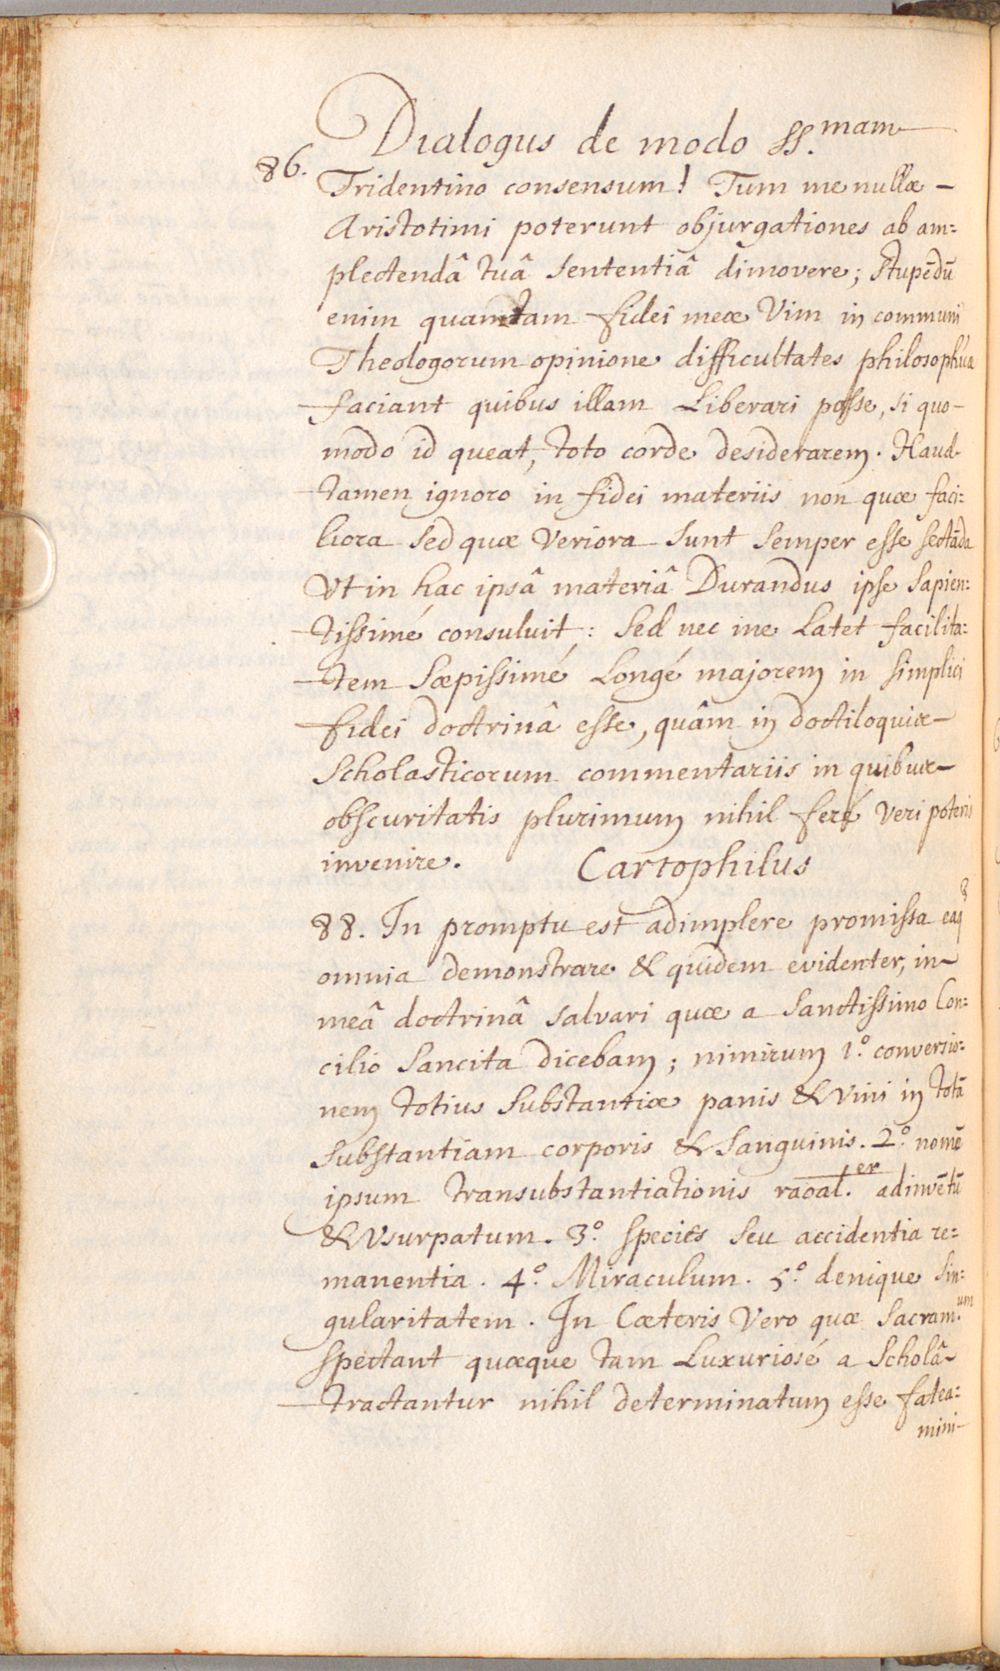 Dialogus de modo SS.mam
86.
Tridentino consensum! Tum me nullæ
Aristotimi poterunt objurgationes ab am=
plectendâ tuâ Sententiâ dimovere; Stupēdū
enim quantam fidei meæ Vim in communi
Theologorum opinione difficultates philosophicæ
faciant quibus illam Liberari posse, si quo-
modo id queat, toto corde desiderarem. Haud
tamen ignoro in fidei materiis non quæ faci=
liora Sed quæ Veriora Sunt Semper esse sectāda
Vt in hac ipsâ materiâ Durandus ipse Sapien=
tissimé consuluit: Sed nec me Latet facilita=
tem Sæpissimé Longé majorem in simplici
fidei doctrinâ esse, quâm in doctiloquiæ
Scholasticorum commentariis in quibus
obscuritatis plurimum nihil feré Veri poteris
invenire. Cartophilus
88. In promptu est adimplere promissa eaq
omnia demonstrare & quidem evidenter, in
meâ doctrinâ salvari quæ a Sanctissimo Con=
cilio Sancita dicebam; nimirum 1.º conversio=
nem totius Substantiæ panis & Vini in totā
Substantiam corporis & Sanguinis. 2.º nomē
ipsum transubstantiationis raoal.er adinvētū
& Vsurpatum. 3.º species seu accidentia re=
manentia. 4.º Miraculum. 5.º denique Sin=
gularitatem. In Cæteris Vero quæ Sacram.um
spectant quæque tam Luxuriosé a Scholâ
tractantur nihil determinatum esse fatea=
mini-